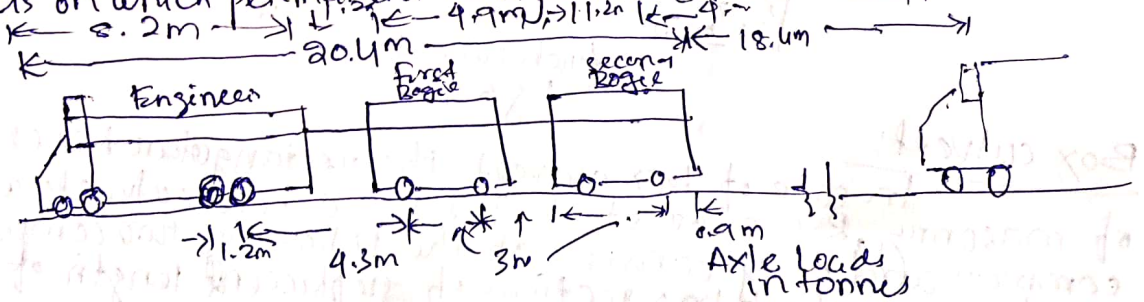 is on which
8.2m 4.9m 1.2m 4.
20.4m 18.4m
Engineer First Bogie Second Bogie
1.2m 4.3m 3m 0.9m
Axle Loads
in tonnes